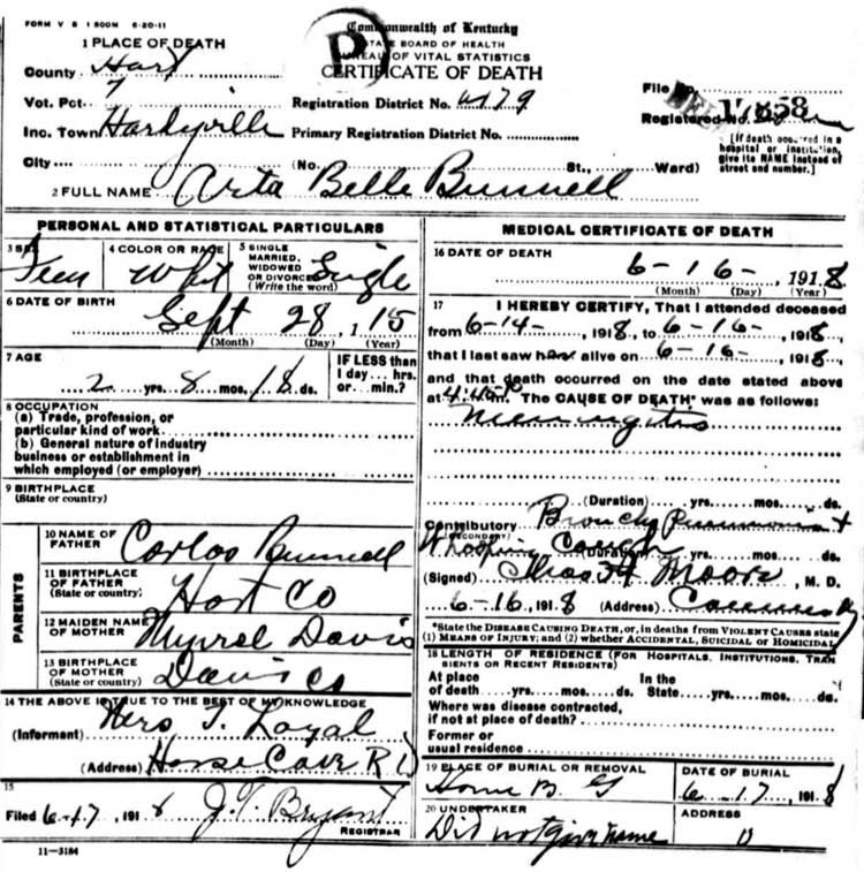 FORM V S 1 500M 6-20-11
Commonwealth of Kentucky
STATE BOARD OF HEALTH
BUREAU OF VITAL STATISTICS
CERTIFICATE OF DEATH
1 PLACE OF DEATH
County Hart
Vot. Pct. 7
Inc. Town Hardyville
City
Registration District No.
Primary Registration District No.
(No. St., Ward)
File No.
Registered No.
[If death occurred in a hospital or institution, give its NAME instead of street and number.]
2 FULL NAME Arta Belle Bunnell
PERSONAL AND STATISTICAL PARTICULARS
3 SEX Fem
4 COLOR OR RACE Whit
5 SINGLE MARRIED, WIDOWED OR DIVORCED (Write the word) Single
6 DATE OF BIRTH Sept 28, 1 15
(Month) (Day) (Year)
7 AGE 2 yrs. 8 mos. 18 ds.
IF LESS than 1 day... hrs. or... min.?
8 OCCUPATION
(a) Trade, profession, or particular kind of work
(b) General nature of industry business or establishment in which employed (or employer)
9 BIRTHPLACE
(State or country)
PARENTS
10 NAME OF FATHER Carlos Bunnell
11 BIRTHPLACE OF FATHER (State or country) Hart Co
12 MAIDEN NAME OF MOTHER Myrrel Davis
13 BIRTHPLACE OF MOTHER (State or country)
14 THE ABOVE IS TRUE TO THE BEST OF MY KNOWLEDGE
(Informant) T. Loyal
(Address) Horse Cave R 1
15
Filed 6-17, 1918 J.T. Bryant
REGISTRAR
11-3184
MEDICAL CERTIFICATE OF DEATH
16 DATE OF DEATH
6-16-, 1918
(Month) (Day) (Year)
17 I HEREBY CERTIFY, That I attended deceased
from 6-14-, 1918, to 6-16-, 1918,
that I last saw her alive on 6-16-, 1918,
and that death occurred on the date stated above
at 4:45 m. The CAUSE OF DEATH* was as follows:
Meningitis
(Duration) yrs. mos. ds.
Contributory Broncho Pneumonia +
(SECONDARY)
Whooping Cough (Duration) yrs. mos. ds.
(Signed) Chas H Moore, M. D.
6-16, 1918 (Address)
*State the DISEASE CAUSING DEATH, or, in deaths from VIOLENT CAUSES state
(1) MEANS OF INJURY; and (2) whether ACCIDENTAL, SUICIDAL or HOMICIDAL
18 LENGTH OF RESIDENCE (FOR HOSPITALS, INSTITUTIONS, TRAN
SIENTS OR RECENT RESIDENTS)
At place of death yrs. mos. ds. In the State yrs. mos. ds.
Where was disease contracted,
if not at place of death?
Former or
usual residence
19 PLACE OF BURIAL OR REMOVAL Home B. G
DATE OF BURIAL 6-17, 1918
20 UNDERTAKER Did not give name
ADDRESS